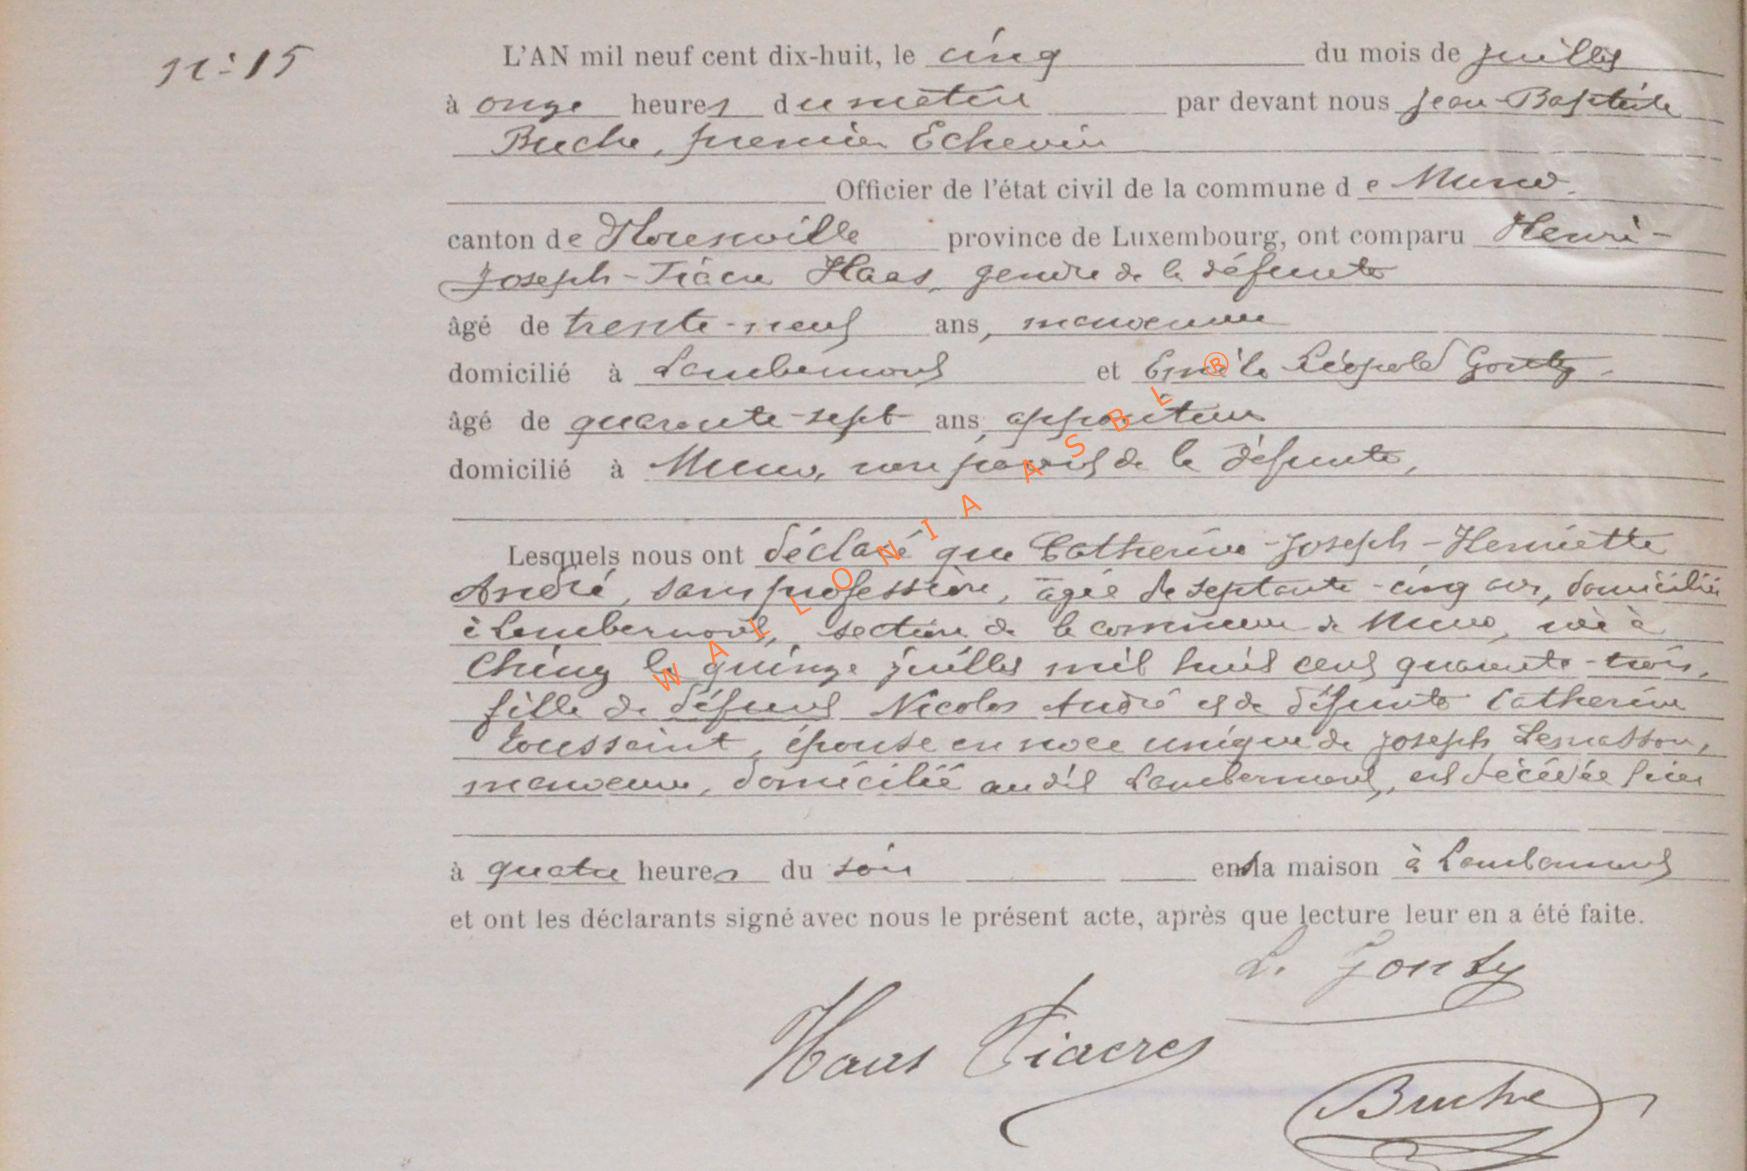 n° 15
L'AN mil neuf cent dix-huit, le cinq du mois de juillet
à onze heures du matin par devant nous Jean-Baptiste
Buche, premier Echevin
Officier de l'état civil de la commune de Muno.
canton de Florenville province de Luxembourg, ont comparu Henri-
Joseph-Fiacre Haas, gendre de la défunte
âgé de trente-neuf ans, manoeuvre
domicilié à Lambermont et Emile Léopold Gonty.
âgé de quarante-sept ans, appariteur
domicilié à Muno, non parent de la défunte,
Lesquels nous ont déclaré que Catherine-Joseph-Henriette
André, sans profession, âgée de septante-cinq ans, domiciliée
à Lambermont, section de la commune de Muno, née à
Chiny le quinze juillet mil huit cent quarante-trois,
fille de défunt Nicolas André et de défunte Catherine
Toussaint, épouse en noce unique de Joseph Lemasson,
manoeuvre, domicilié au dit Lambermont, est décédée hier
à quatre heures du soir en sa maison à Lambermont
et ont les déclarants signé avec nous le présent acte, après que lecture leur en a été faite.
L. Gonty
Haas Fiacre
Buche
WALLONIA ASBL ®